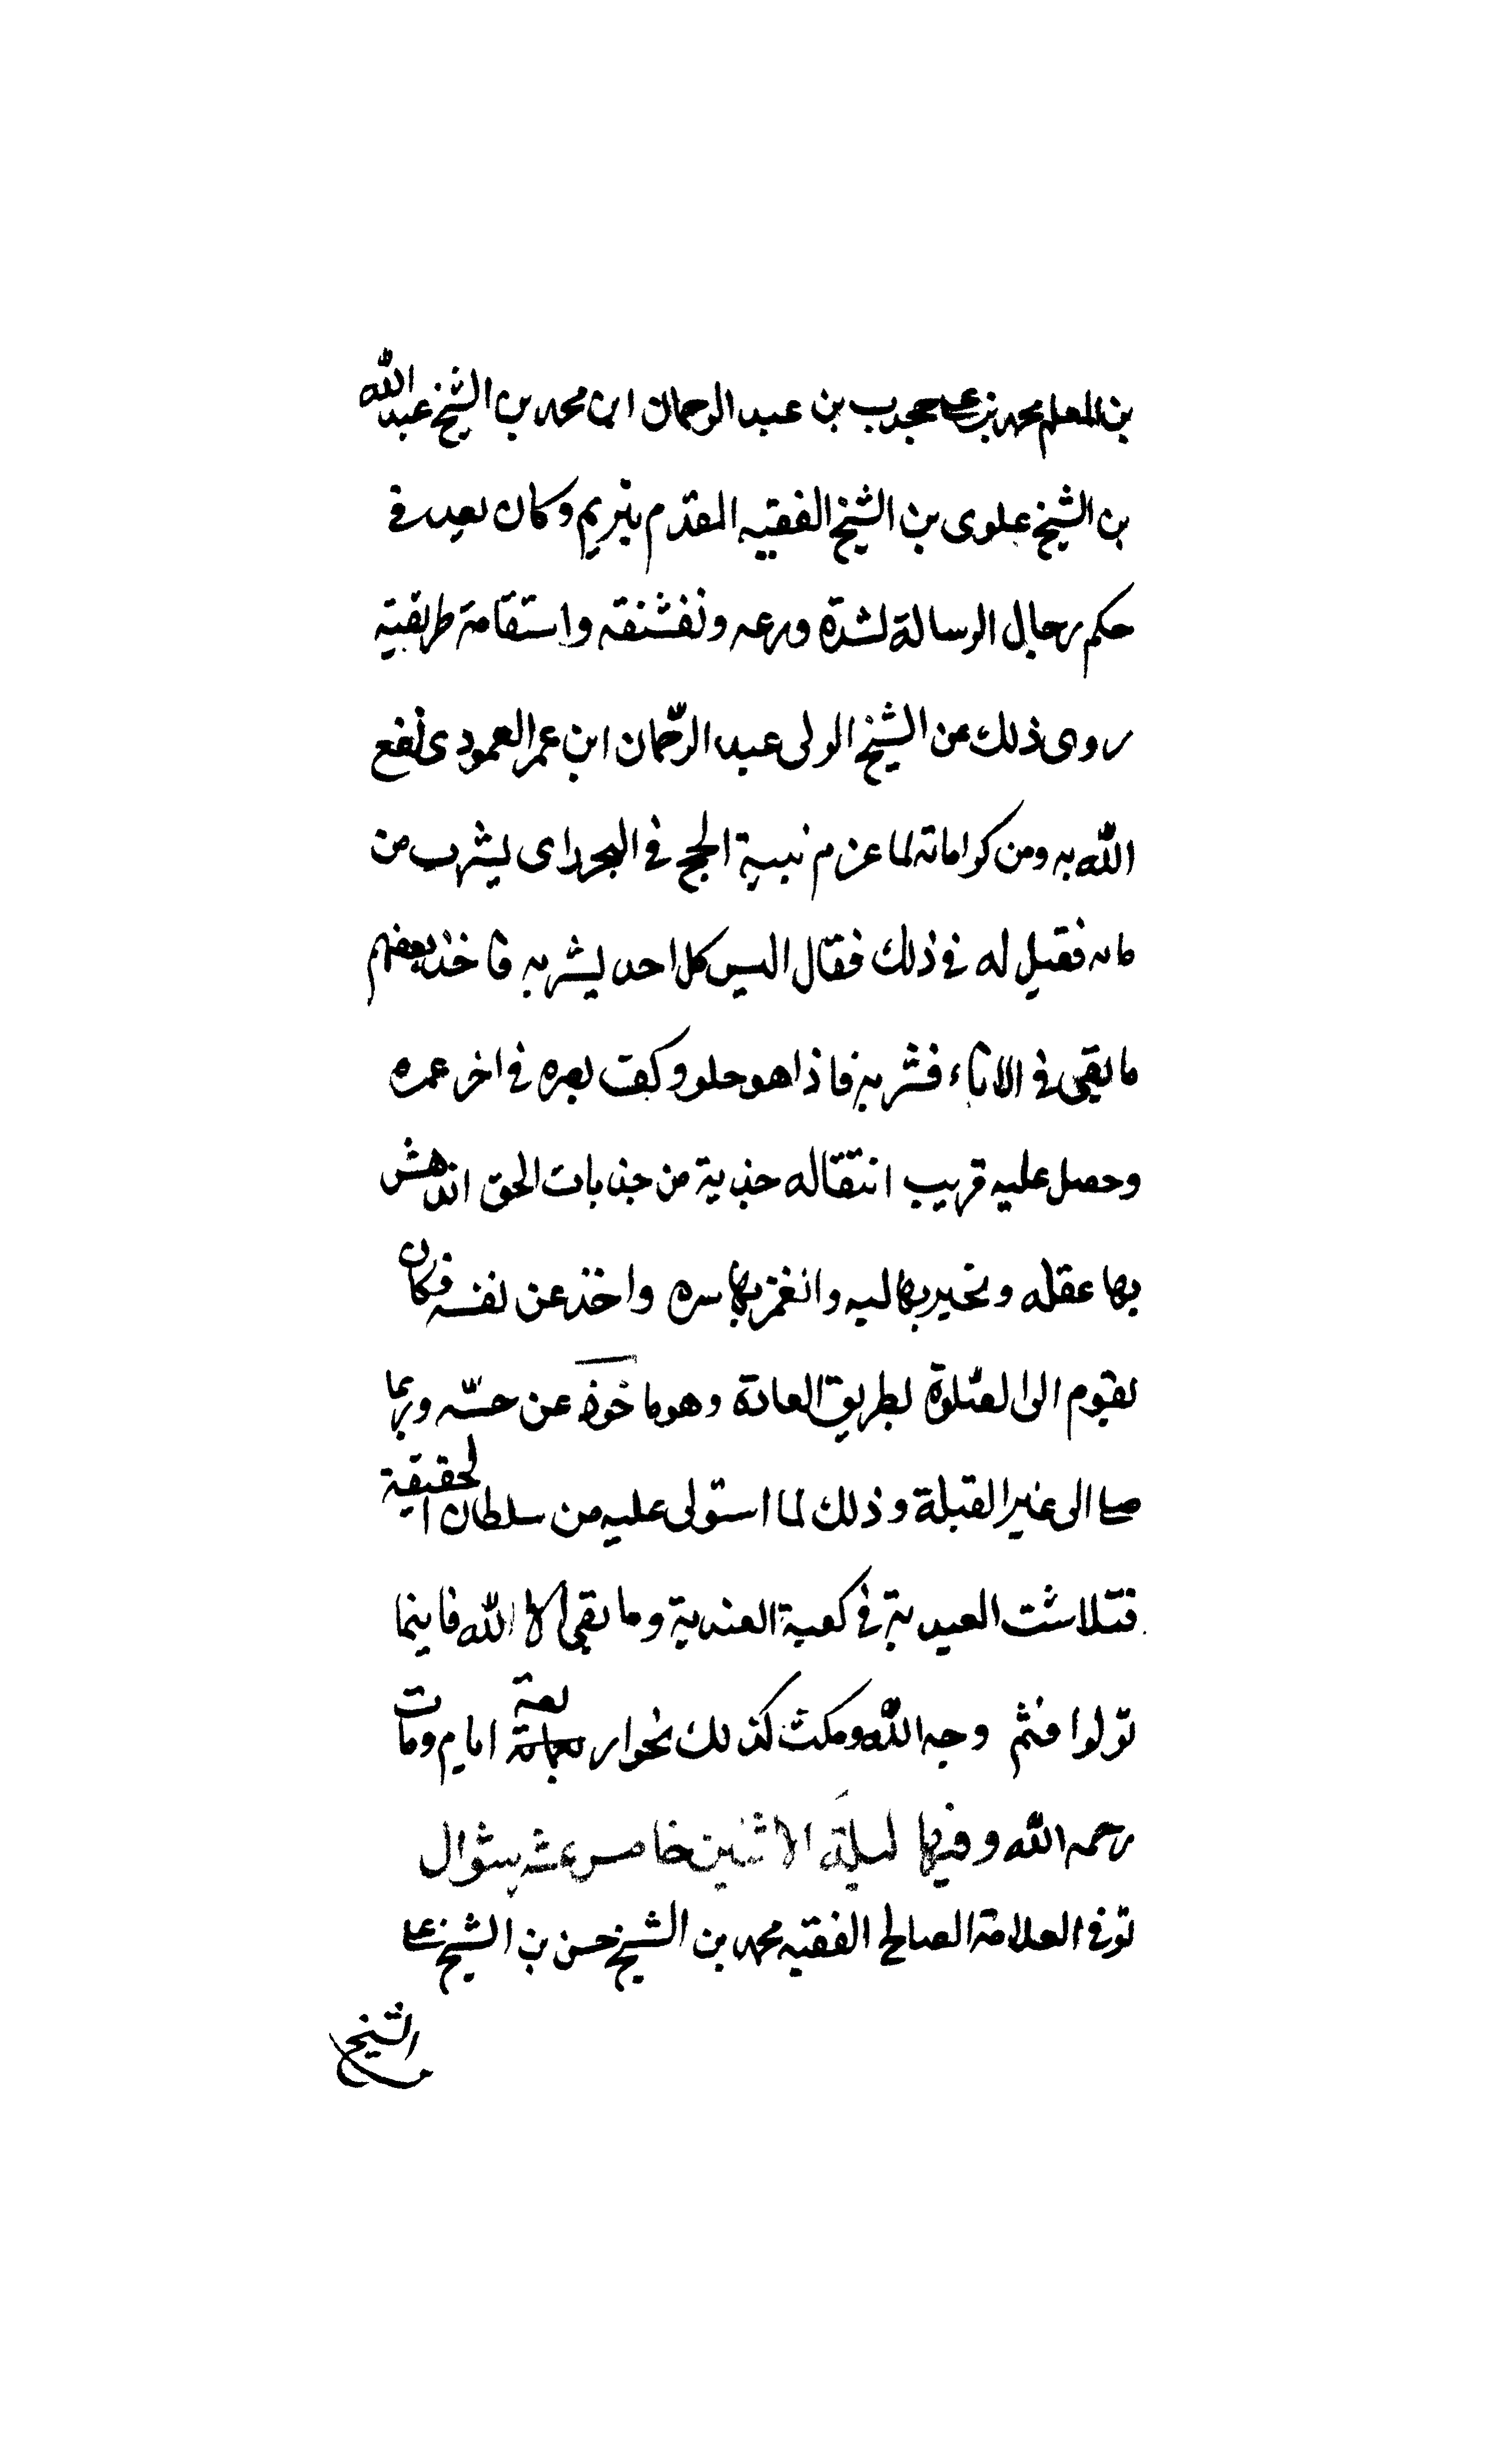 بن المعلم محمد بن على جحدب بن عبد الرحمان ابن محمد بن الشيخ عبد الله
بن الشيخ علوى بن الشيخ الفقيه المقدم بتريم وكان يعد فى
حكم رجال الرسالة لشدة ورعه وتقشفه واستقامة طريقته
روى ذلك عن الشيخ الولى عبد الرحمان ابن عمر العمودى نفع
الله به ومن كراماته لما عزم نيية الحج فى البحر راى يشرب من
مايه فقيل له فى ذلك فقال اليس كل احد يشربه فاخذ بعضهم
ما بقى فى الاناء فشربه فاذا هو حلو وكف بصره فى اخر عمره
وحصل عليه قريب انتقاله جذبة من جذبات الحق اندهش
بها عقله وتحير بها لبه وانغمز بها سره واخذ عن نفسه فكان
يقوم الى الصلوة بطريق العادة وهو ماخوذ عن حسّه وربما
صلى الى غير القبلة وذلك لما استولى عليه من سلطان الحقيقة
فتلاشت العبدية فى كعبة العندية وما بقى الا الله فاينما
تولوا فثم وجه الله ومكث كذلك نحو اربعة ايام ومات
رحمه الله وفيها ليلة الاثنين خامس عشر شوال
توفى العلامة الصالح الفقيه محمد بن الشيخ حسن بن الشيخ على
الشيخ